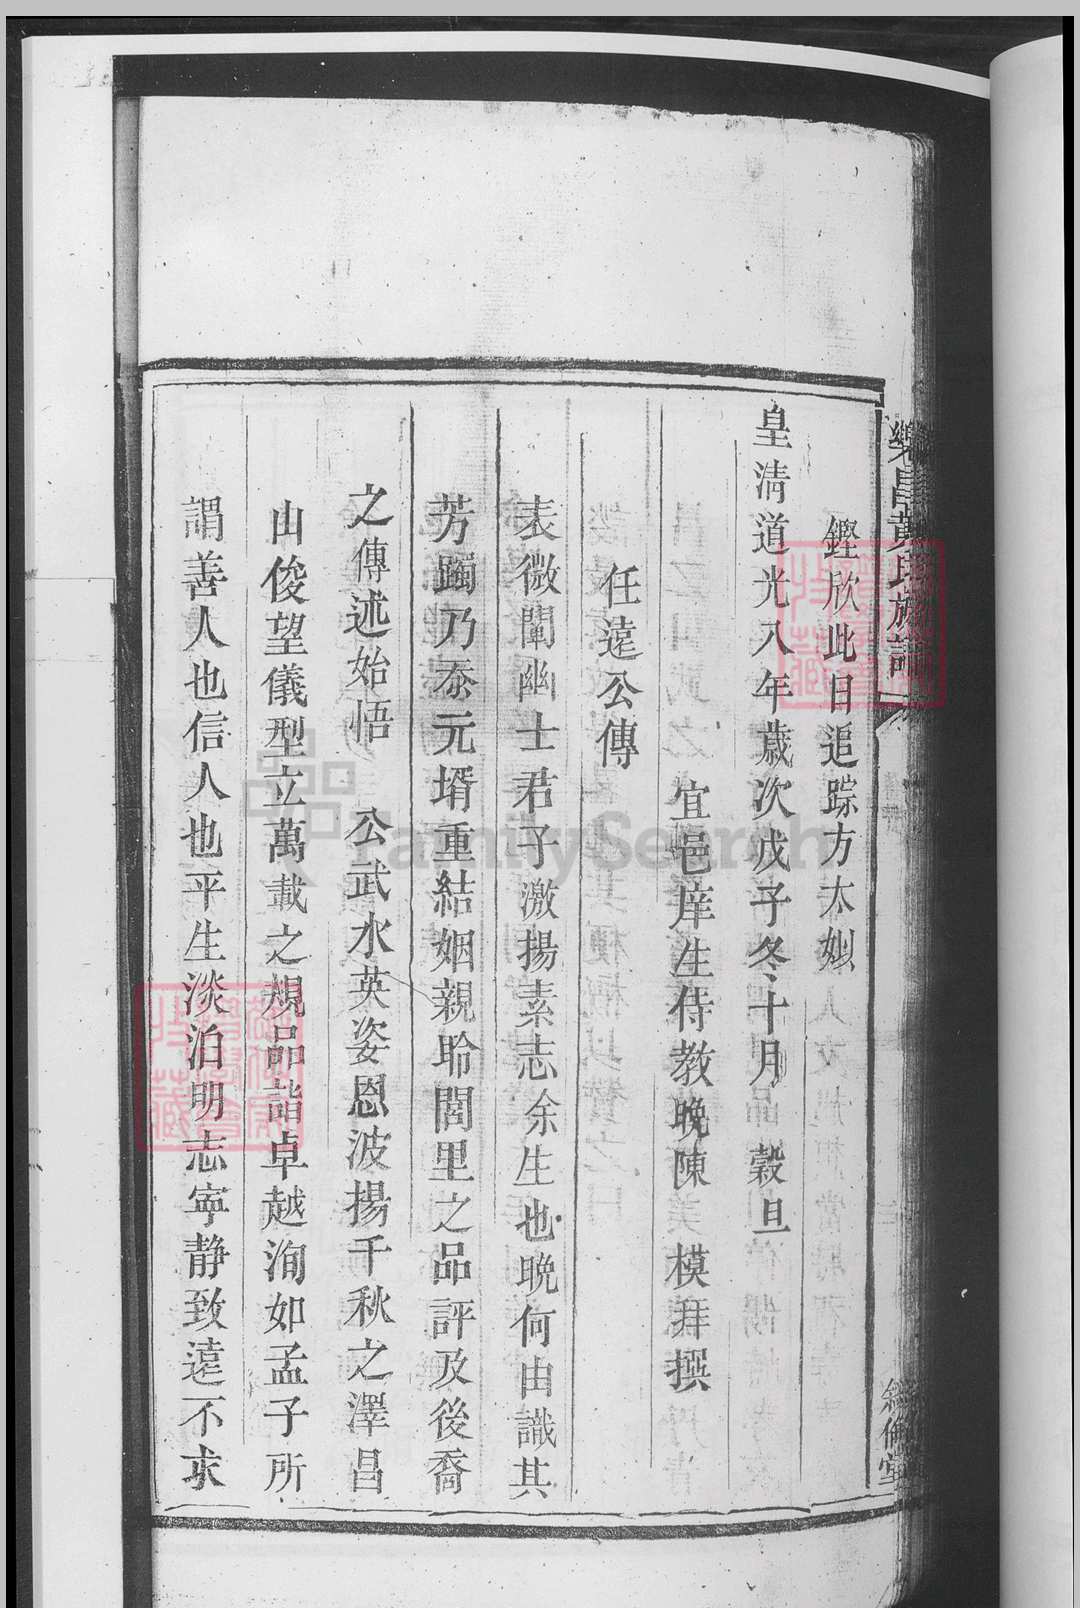 樂昌黃氏族譜
經倫堂
鏗欣此日追踪方太姒
皇清道光八年歲次戊子冬十月 穀旦
宜邑庠生侍教晚陳 模拜撰
任遠公傳
表微闡幽士君子激揚素志余生也晚何由識其
芳躅乃泰元壻重結姻親聆閭里之品評及後裔
之傳述始悟 公武水英姿恩波揚千秋之澤昌
山俊望儀型立萬載之規品詣卓越洵如孟子所
謂善人也信人也平生淡泊明志寧静致遠不求
FamilySearch